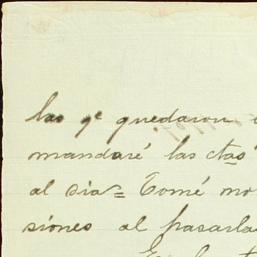 las qe quedaron
mandaré las ctas
al dia = Tomé no
siones al pasarla